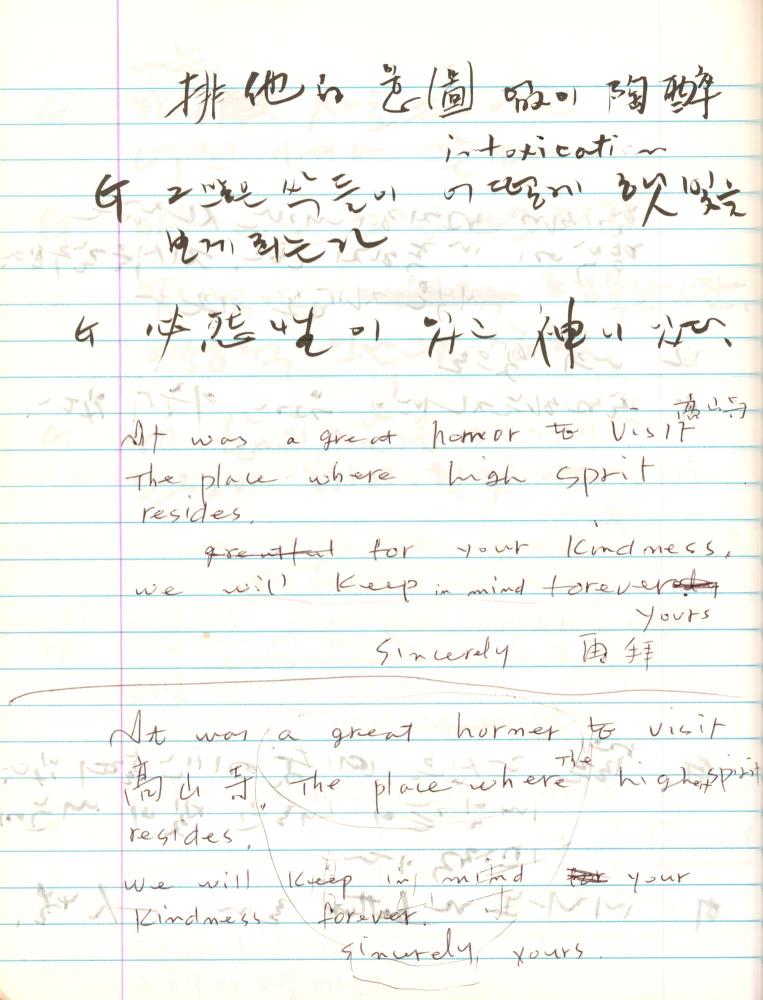 排他的 意圖 陶醉
intoxication
그 많은 싹들이 어떻게 햇빛을
보게 되는가
必然性이 있는 神이 있다.
高山寺
It was a great hornor to visit
The place where high sprit
resides.
greatful for your kindness,
we will keep in mind forever
yours
Sincerely 再拜
It was a great horner to visit
高山寺, The place where The highest spirit
resides.
we will keep in mind for your
kindness forever.
sincerely, yours.